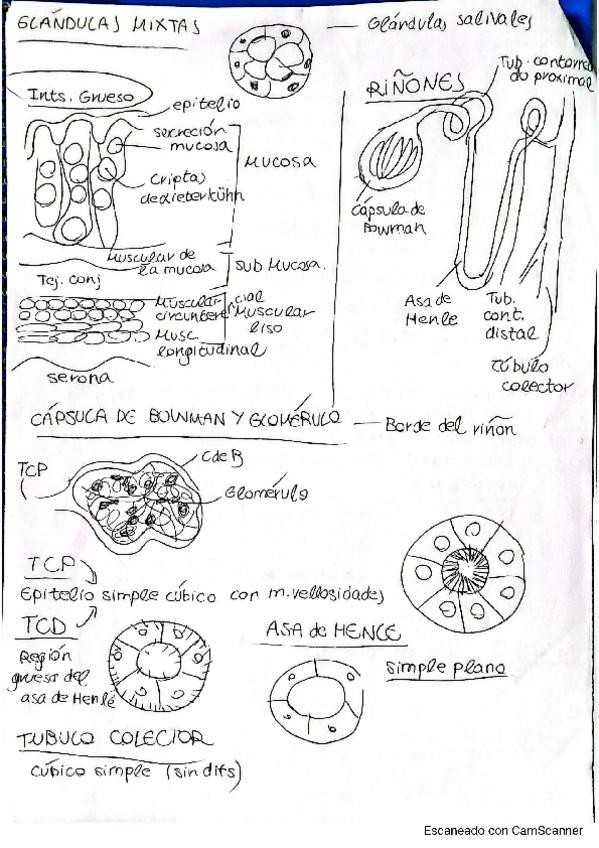 GLÁNDULAS MIXTAS
Glándulas salivales
Ints. Grueso
epitelio
secreción
mucosa
Criptas
de dieterkühn
Mucosa
Muscular de
la mucosa
Sub Mucosa.
Tej. conj
Muscular
circunfere
cial
Musc.
longitudinal
Muscular
liso
serona
RIÑONES
Tub. contorna
do proximal
Cápsula de
Bowman
Asa de
Henle
Tub.
cont.
distal
Túbulo
colector
CÁPSULA DE BOWMAN Y GLOMÉRULO
Borde del riñon
TCP
C de B
Glomérulo
TCP
Epitelio simple cúbico con m.vellosidades
TCD
Región
gruesa del
asa de Henlé
ASA de HENLE
simple plano
TUBULO COLECTOR
cúbico simple (sin difs)
Escaneado con CamScanner